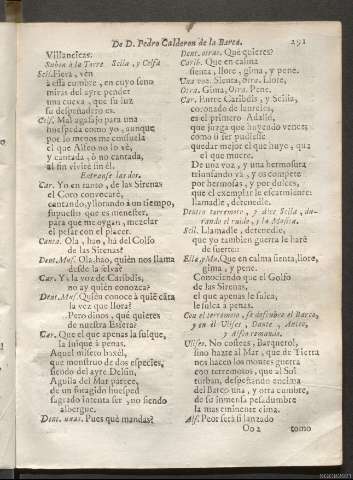 De D. Pedro Calderon de la Barca.
291
Villancicos.
Suben à la Torre Scila, y Celfa
Scil. Fiera, vèn
à esta cumbre, en cuyo seno
miras del ayre pender
una cueva, que su luz
su despeñadero es.
Celf. Mal agasajo para una
huespeda como yo, aunque
por lo menos me consuela
el que Alfeo no lo vè,
y cantada, ò no cantada,
al fin vivirè sin èl.
Entranse las dos.
Car. Yo en tanto, de las Sirenas
el Coro convocarè,
cantando, y llorando à un tiempo,
supuesto que es menester,
para que me oygan, mezclar
el pesar con el placer.
Canta. Ola, hao, hà del Golfo
de las Sirenas?
Dent. Mus. Ola, hao, quièn nos llama
desde la selva?
Car. Y à la voz de Caribdis,
no ay quièn conozca?
Dent. Mus. Quièn conoce à quiè cãta
la vez que llora?
Pero dinos, què quieres
de nuestra Esfera?
Car. Que el que apenas la sulque,
la sulque à penas.
Aquel misero baxèl,
que monstruo de dos especies,
siendo del ayre Delfin,
Aguila del Mar parece,
de un foragido huesped
sagrado intenta ser, no siendo
albergue.
Dent. unas. Pues què mandas?
Dent. otras. Que quieres?
Carib. Que en calma
sienta, llore, gima, y pene.
Una voz. Sienta, Otra. Llore,
Otra. Gima, Otra. Pene.
Car. Entre Caribdis, y Scila,
coronado de laureles,
es el primero Adalid,
que juzga que huyendo vence;
como si ser pudiesse
quedar mejor el que huye, que
el que muere.
De una voz, y una hermosura
triunfando và, y os compete
por hermosas, y por dulces,
que el exemplar le escarmiente:
llamadle, detenedle.
Dentro terremoto, y dize Scila, du-
rando el ruido, y la Musica.
Scil. Llamadle, detenedle,
que yo tambien guerra le harè
de suerte:
Ella, y Mu. Que en calma sienta, llore,
gima, y pene.
Conociendo que el Golfo
de las Sirenas,
el que apenas le sulca,
le sulca à penas.
Con el terremoto, se descubre el Barco,
y en èl Ulises, Dante, Anteo,
y Alfeo remando.
Ulises. No costees, Barquerol,
sino hazte al Mar, que de Tierra
nos hacen los montes guerra
con terremotos, que al Sol
turban, despeñando encima
del Barco una, y otra cumbre,
de su inmensa pesadumbre
la mas eminente cima.
Alf. Peor serà si lanzado
Oo 2
como